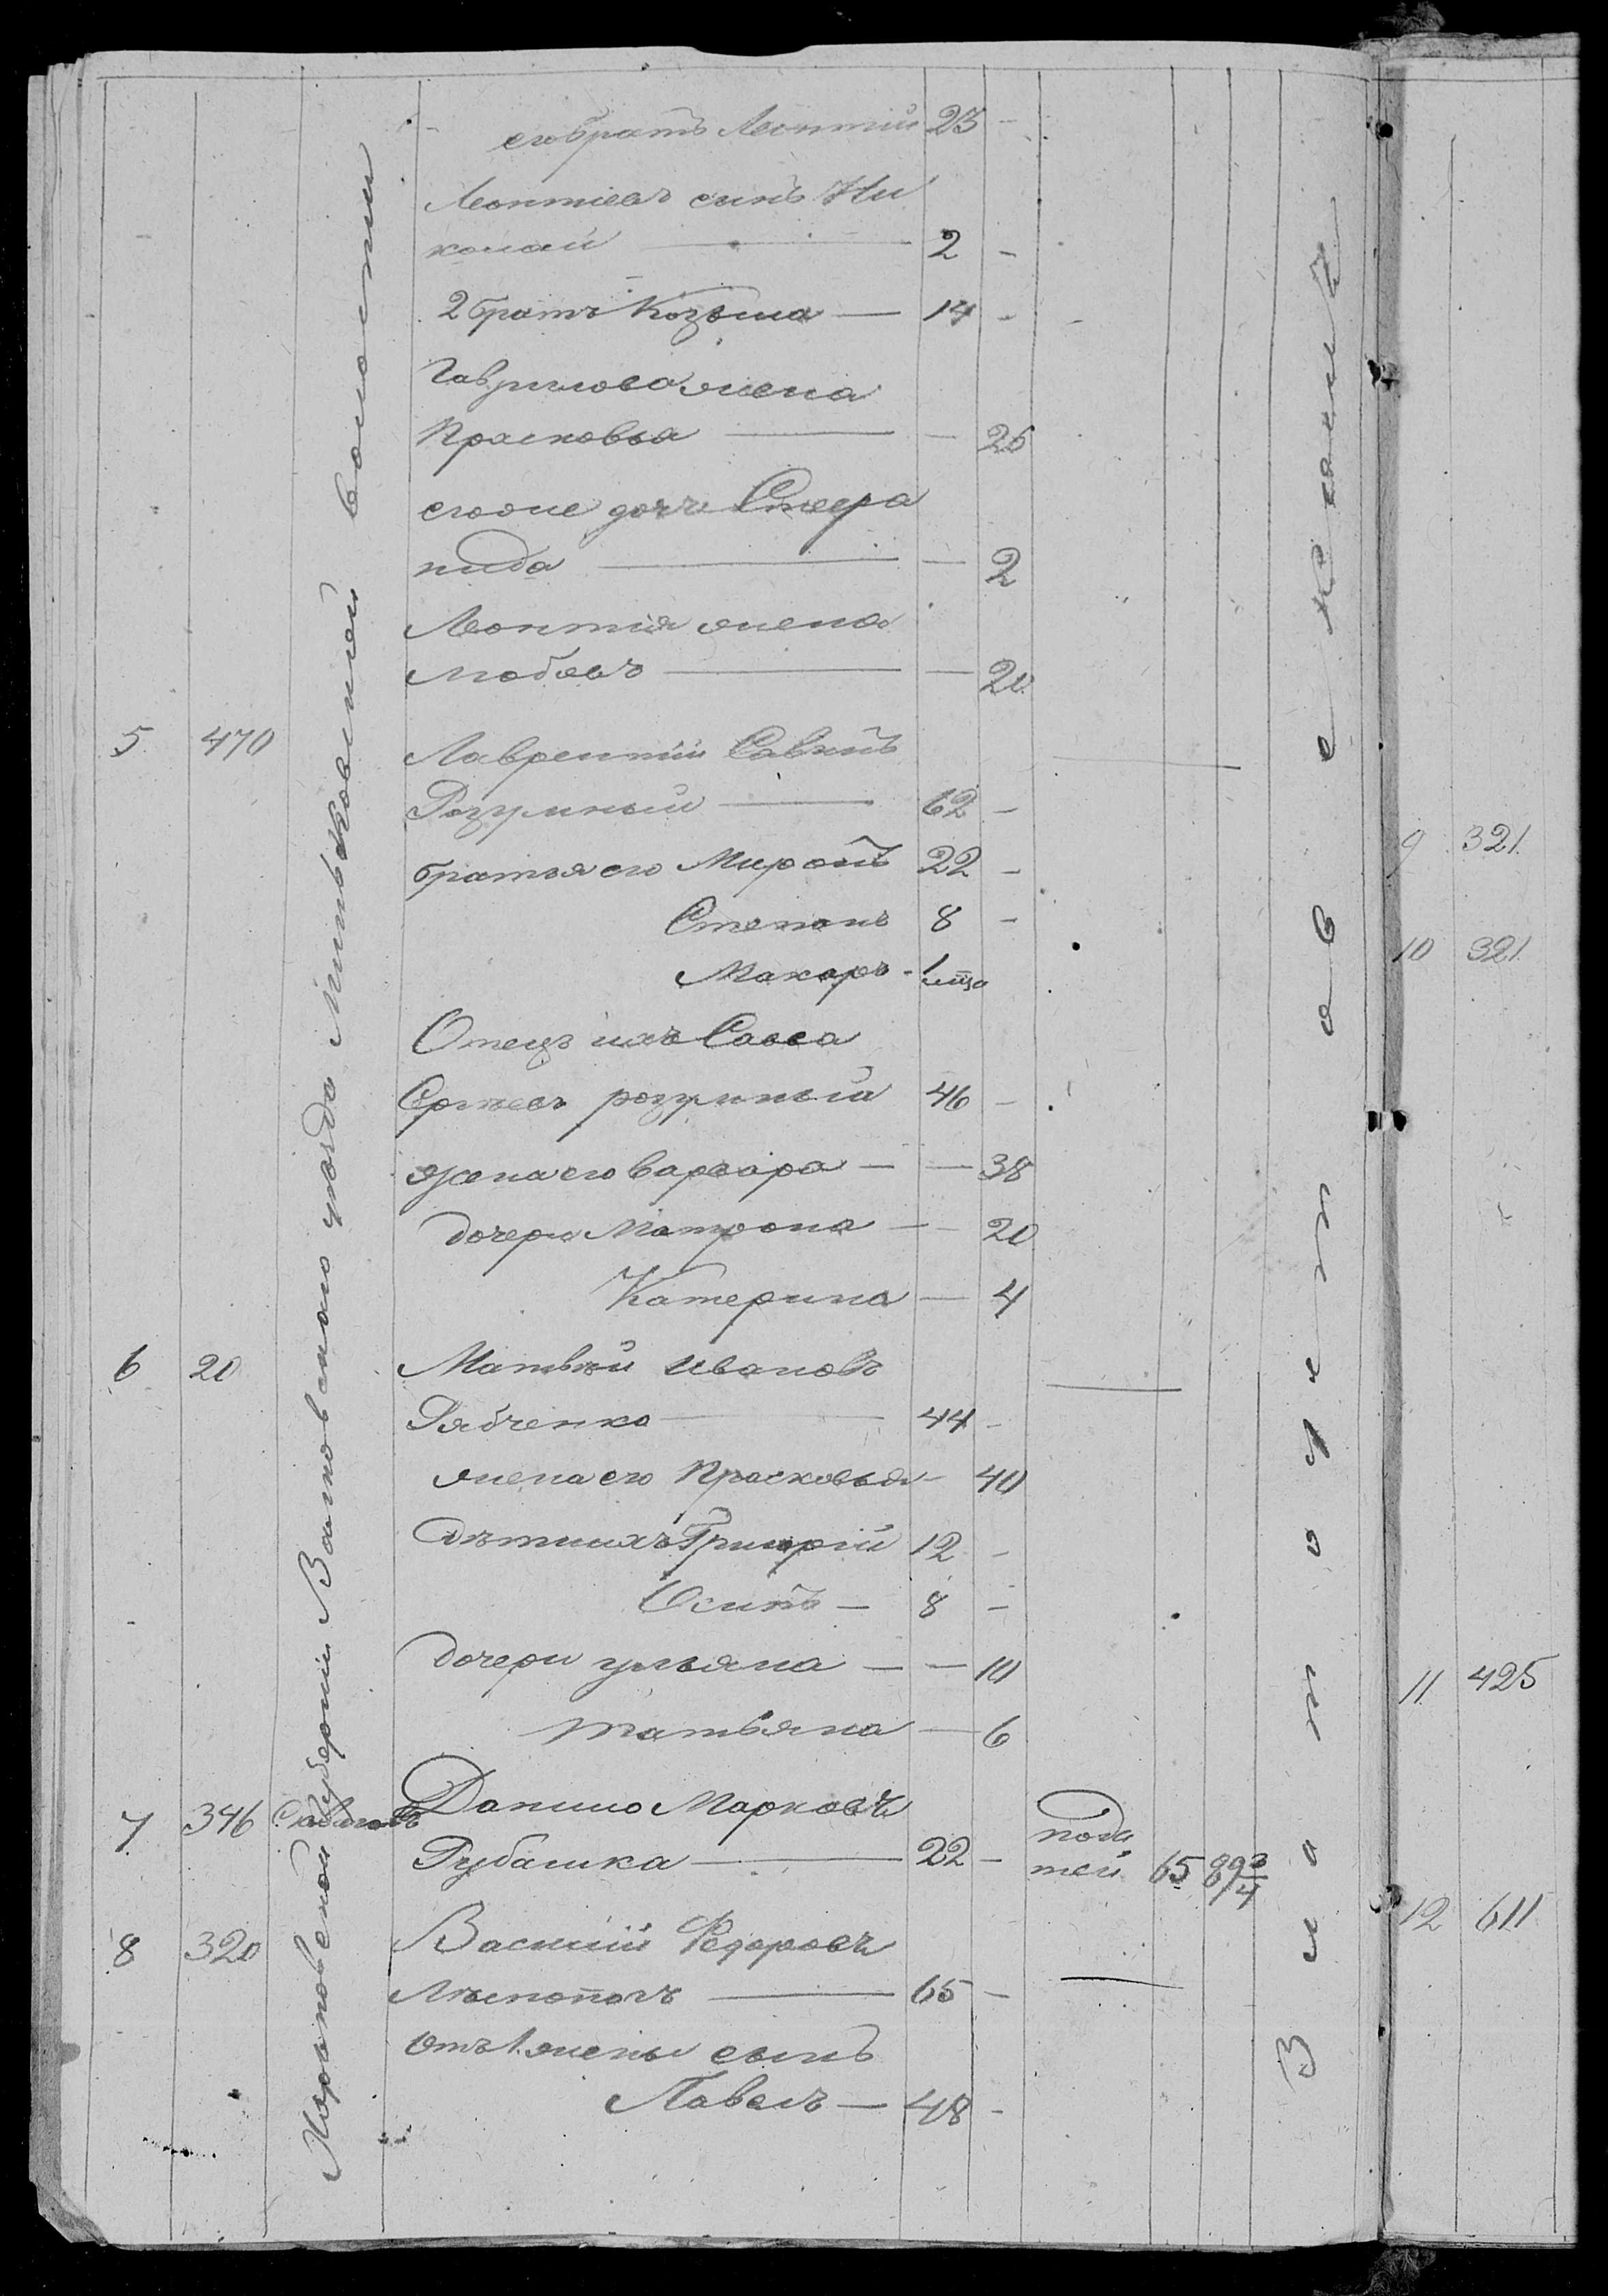 его братъ Леонтій 23 -
Леонтіевъ сынъ Ни
колай — 2 -
2 братъ Козьма — 14 -
Гаврилова жена
Прасковья — — 26
его же дочь Степа
нида — — 2
Леонтія жена
Любовь — — 20
5 470 Лаврентій Савинъ
Розумный — 62 -
братья его Миронъ 22 -
Степанъ 8 -
Макаръ - 1
Отецъ ихъ Савва
Сергеевъ розумный 46 -
жена его варвара — — 38
дочери Матрона — — 20
Катерина — 4
6 20 Матвѣй Ивановъ
Рябченко — 44 -
жена его Прасковья - 40
дѣти ихъ Григорій 12 -
Осипъ — 8 -
дочери ульяна — — 10
татьяна — 6
7 346 Данило Марковъ
Рубашка — 22 -
пода
тей 65 89 3/4
8 320 Василий Федоровъ
65 -
Отъ 1 жены сынъ
Павелъ — 48 -
Харьковской Губерніи Валковскаго уѣзда волости
9 321
10 321
11 425
12 611